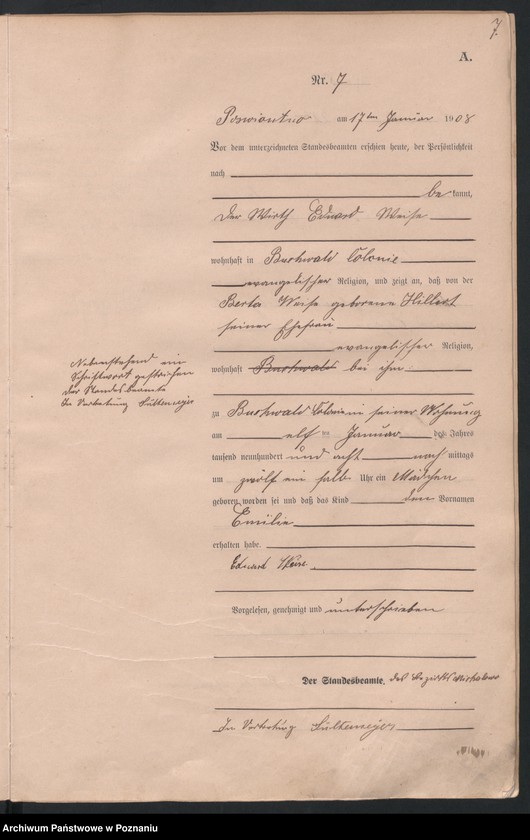 7.
A.
Nr. 7
am 17ten Januar 1908
Vor dem unterzeichneten Standesbeamten erschien heute, der Persönlichkeit
nach
be kannt,
der Wirth Eduard Weise
wohnhaft in Buchwald Colonie
evangelischer Religion, und zeigt an, daß von der
Berta Weise geborene Hillert
seiner Ehefrau
evangelischer Religion,
wohnhaft Buchwald bei ihm
Nebenstehend ein
Schriftwort gestrichen
Der Standesbeamte
In Vertretung
zu Buchwald Colonie in seiner Wohnung
am elf ten Januar des Jahres
tausend neunhundert und acht nach mittags
um zwölf ein halb Uhr ein Mädchen
geboren worden sei und daß das Kind den Vornamen
Emilie
erhalten habe.
Eduard Weise
Vorgelesen, genehmigt und unterschrieben
Der Standesbeamte,
In Vertretung
Archiwum Państwowe w Poznaniu